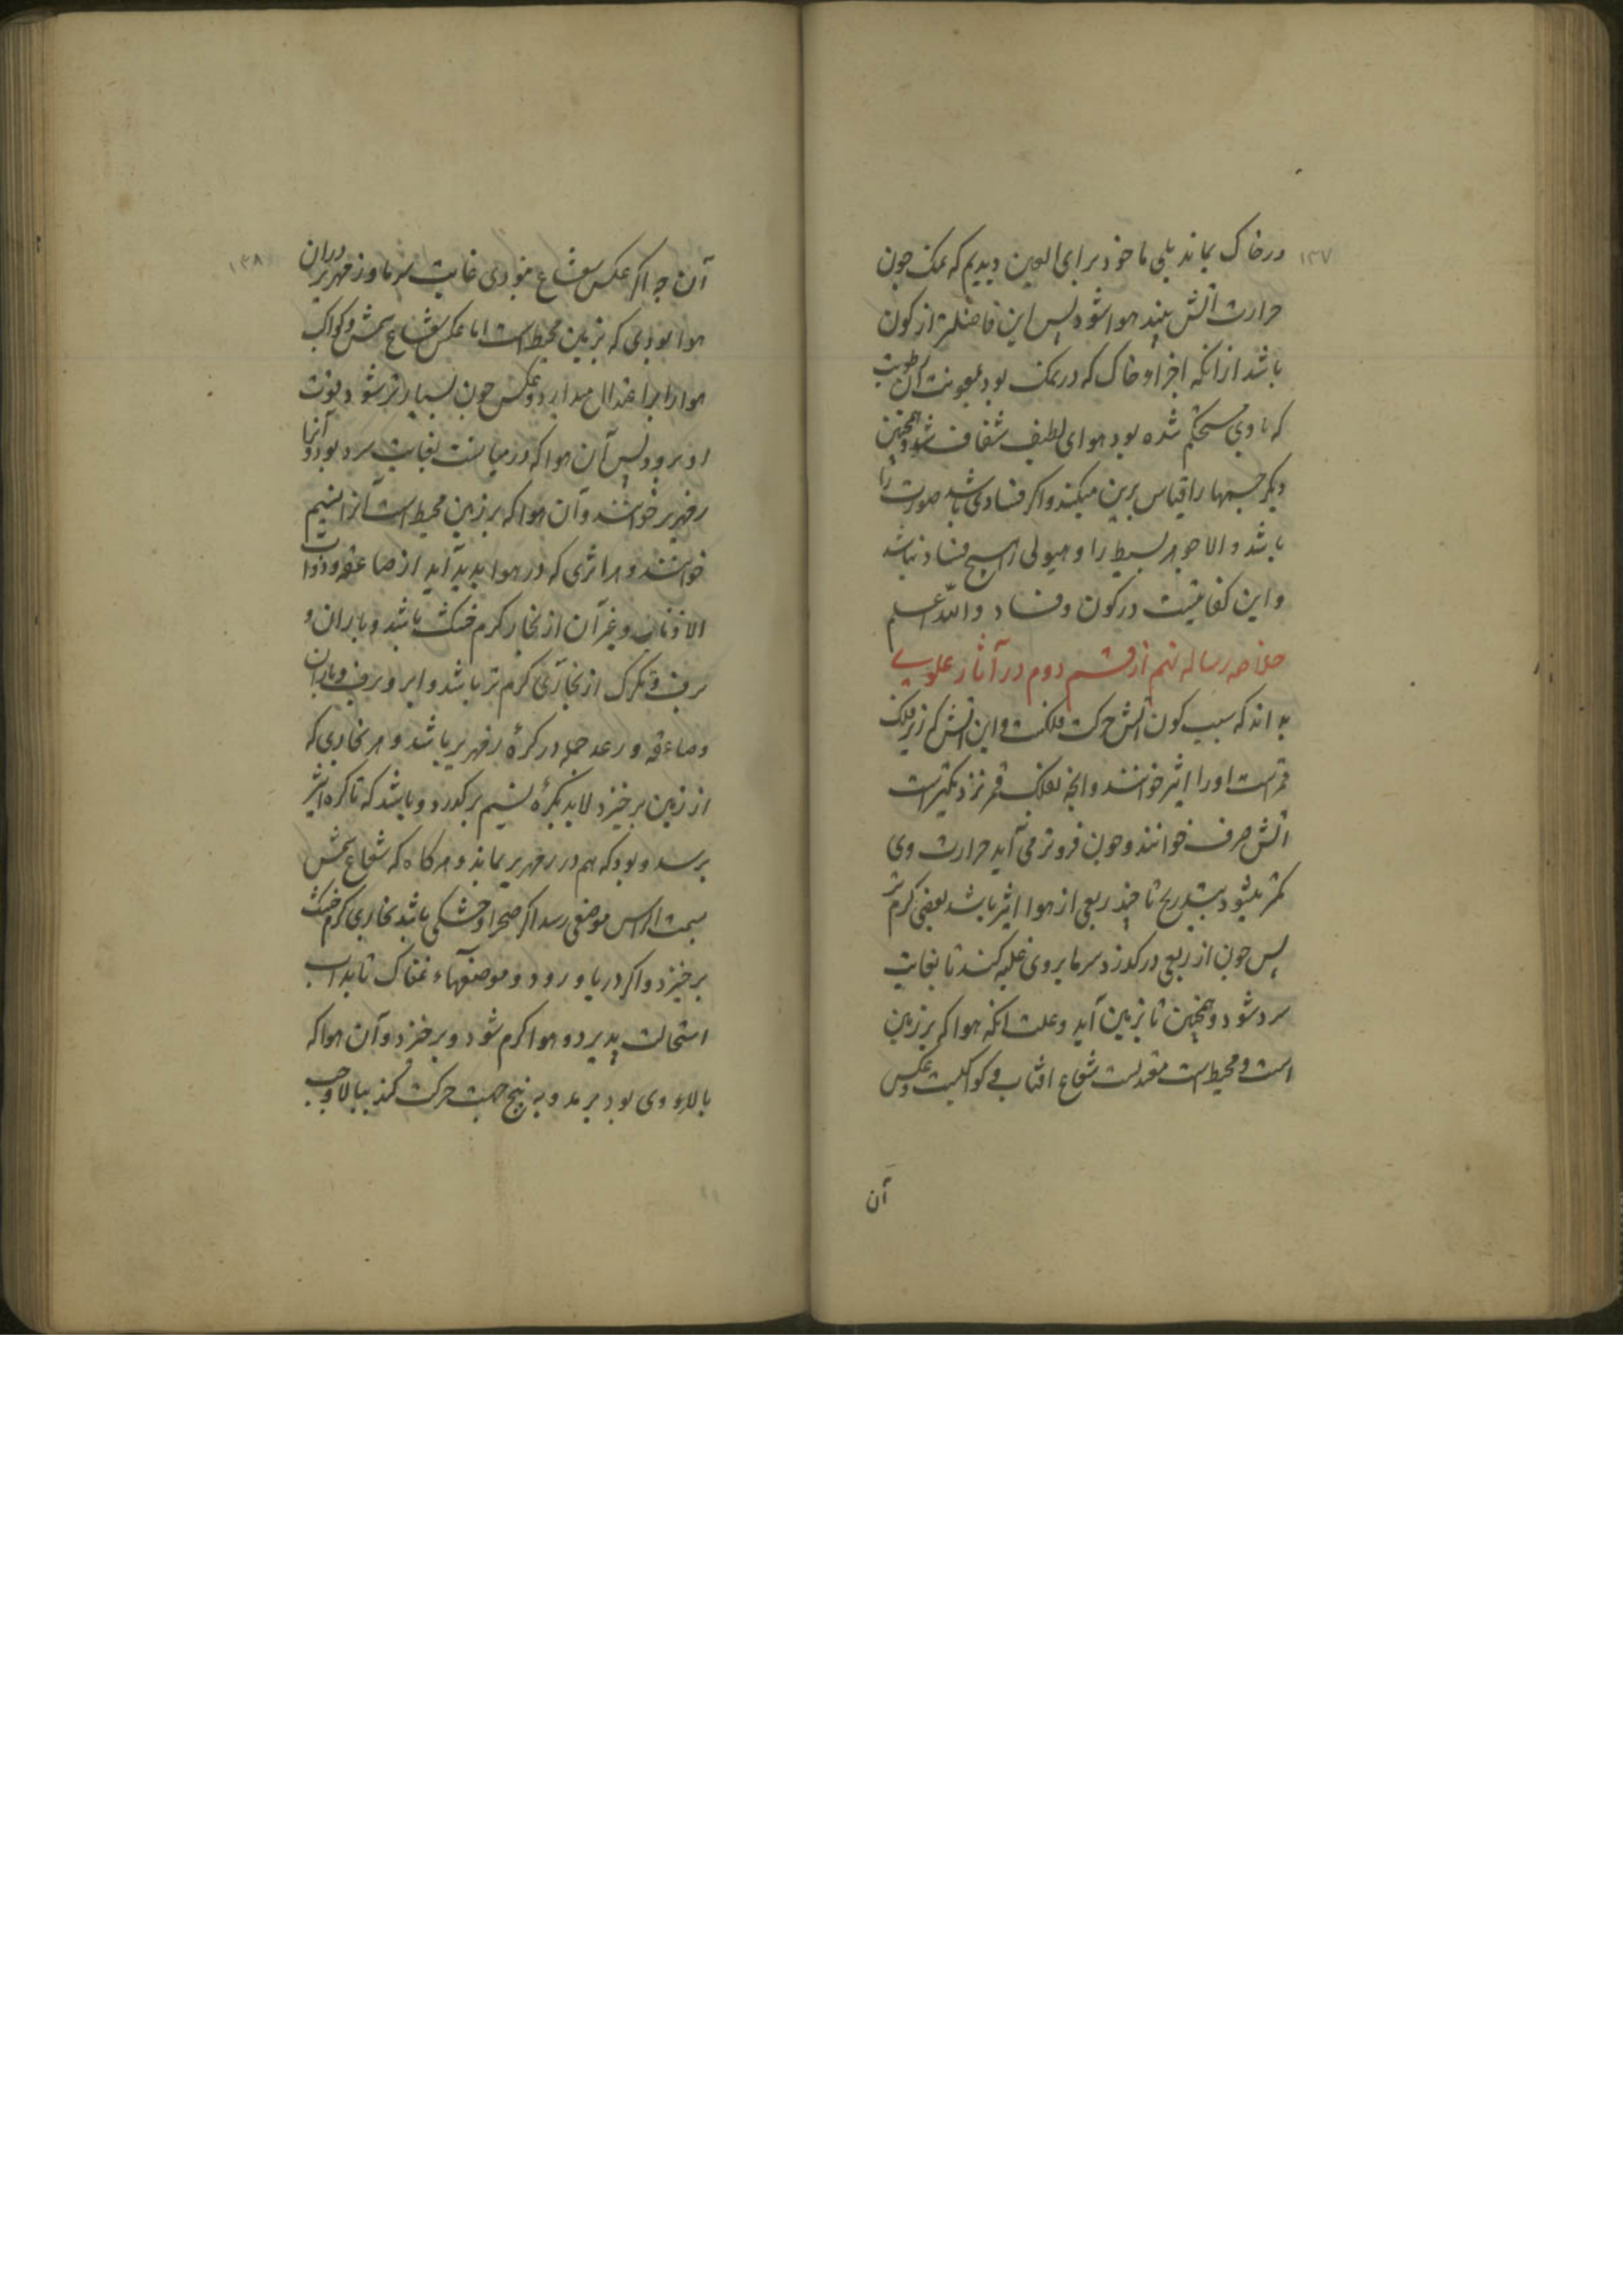 ۱۳۷
در خاک بماند بلی ما خود برای العین دیدیم که نمک چون
حرارت اتش بیند هوا شود پس این فاضلتر از کون
باشد از انکه اجزاء خاک که در نمک بود بمعونت آن رطوبت
که با وی مستحکم شده بود هوای لطیف شفاف شود و همچنین
دیکر جسمها را قیاس برین میکنند و اکر فسادی باشد صورت را
باشد والا جوهر بسیط را و هیولی را هیچ فساد نباشد
و این کفایتست در کون و فساد والله اعلم
خلاصه رساله نهم از قسم دوم در آثار علوی
بدانند که سبب کون اتش حرکت فلکست و این اتش که زیر فلک
قمرست او را اثیر خوانند و انچه بفلک قمر نزدیکترست
اتش صرف خوانند و چون فروتر می آید حرارت وی
کمتر میشود بتدریج تا چند ربعی از هوا اثیر باشد یعنی کرم تر
پس چون از ربعی درکذرد سرما بر وی غلبه کند تا بغایت
سرد شود و همچنین تا بزمین آید و علت انکه هوا که بر زمین
است و محیط است معتدلست شعاع افتاب و کواکبست و عکس
آن
۱۳۸
آن چه اکر عکس شعاع نبودی غایت سرما و زمهریر در آن
هوا بودی که بزمین محیط است اما عکس شعاع شمس و کواکب
هوا را بر اعتدال میدارد و عکس چون بسیار تر شود قوت
او برود پس آن هوا که در میانست بغایت سرد بود و آنرا
زمهریر خوانند و آن هوا که بر زمین محیط است آنرا نسیم
خوانند و هر اثری که در هوا پدید آید از صاعقه و ذوات
الاذناب و غیر آن از بخار کرم خشک باشد و باران و
برف و تکرک از بخارئی کرم تر باشد و ابر و برف و باران
و صاعقه و رعد جمله در کرهٔ زمهریر باشد و هر بخاری که
از زمین برخیزد لابد بکرهٔ نسیم برکذرد و باشد که تا کره اثیر
برسد و بود که هم در زمهریر بماند و هر کاه که شعاع شمس
بسمت الراس موضعی رسد اکر صحرا و خشکی باشد بخاری کرم خشک
برخیزد و اکر دریا و رود و موضعهاء نمناک تابد اب
استحالت پذیرد و هوا کرم شود و برخیزد و آن هوا که
بالاء وی بود برمد و به پنج جهت حرکت کند ببالا و چپ